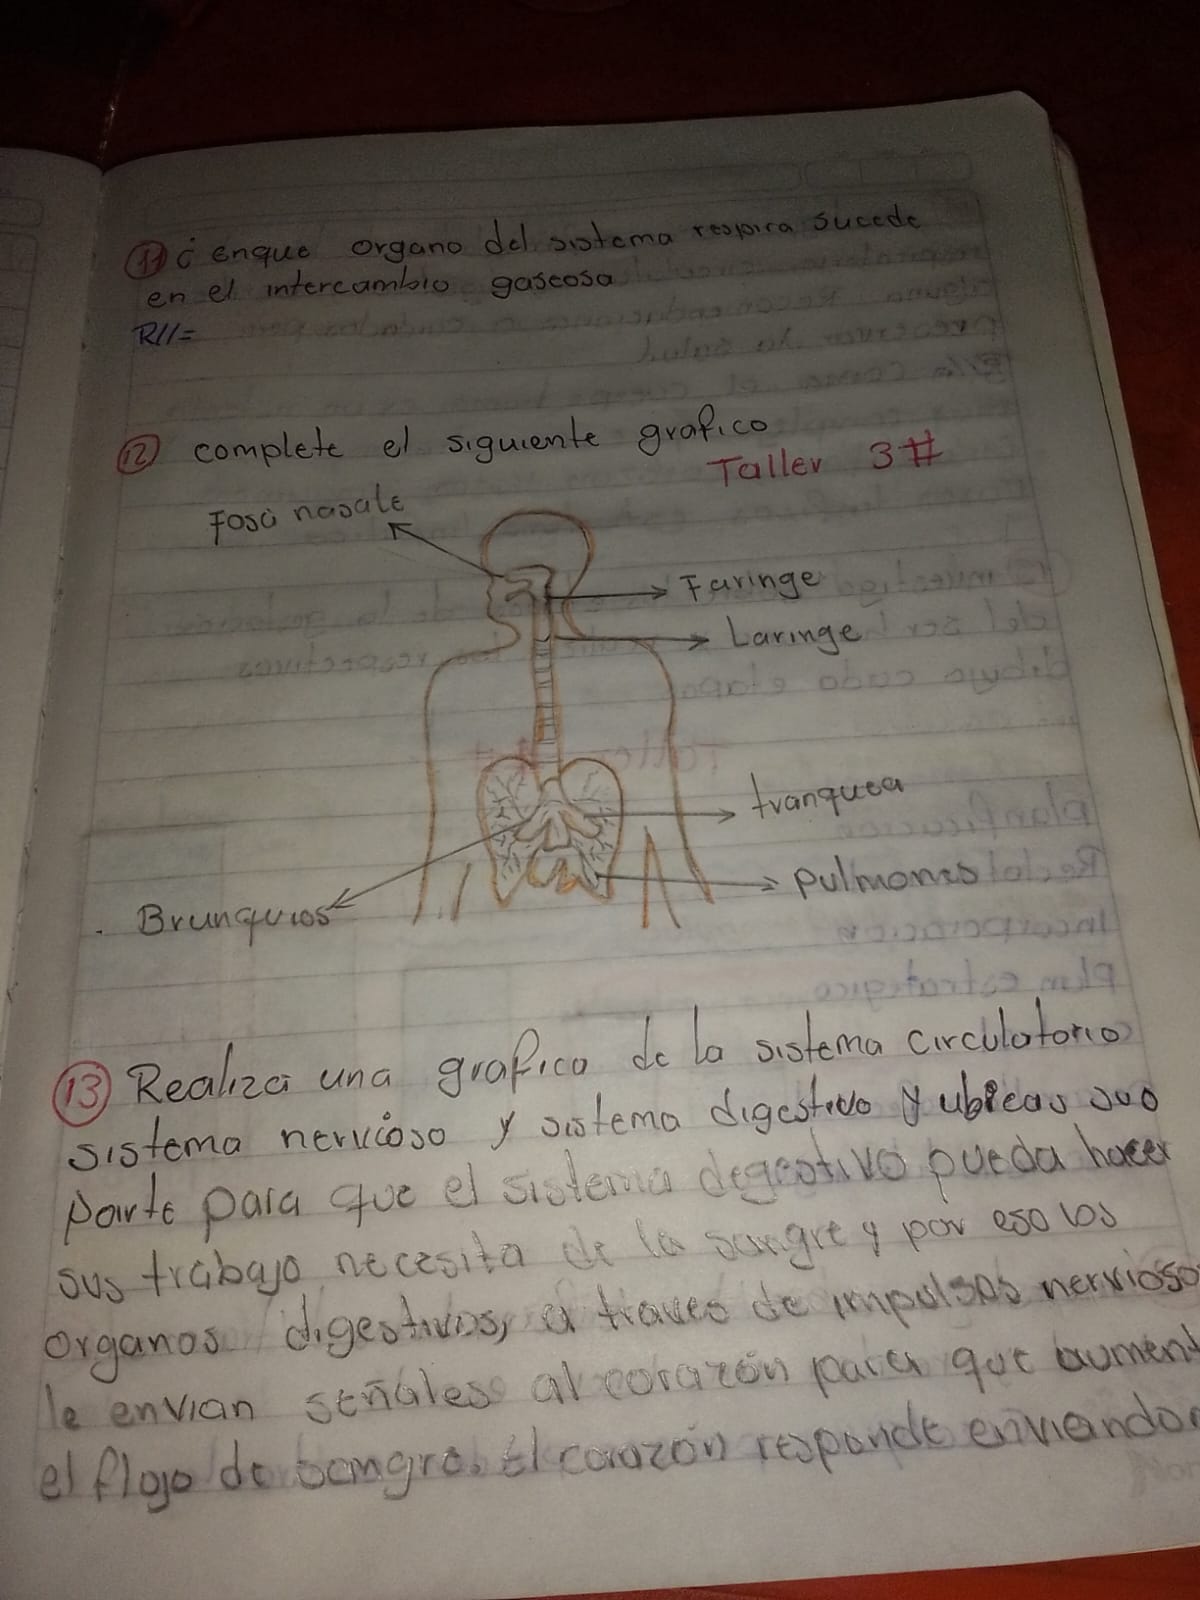 11 ¿ enque organo del sistema respira sucede
en el intercambio gaseosa
R//=
12 complete el siguiente grafico
Taller 3#
Fosa nasale
Faringe
Laringe
tranquea
pulmones
Brunquios
13 Realiza una grafica de la sistema circulatorio
sistema nervioso y sistema digestivo y ubicas sus
parte para que el sistema degestivo pueda hacer
sus trabajo necesita de la sangre y por eso los
organos digestivos, a traves de impulsos nervioso
le envian señales al corazón para que aument
el flojo de sangre. El corazón responde enviando